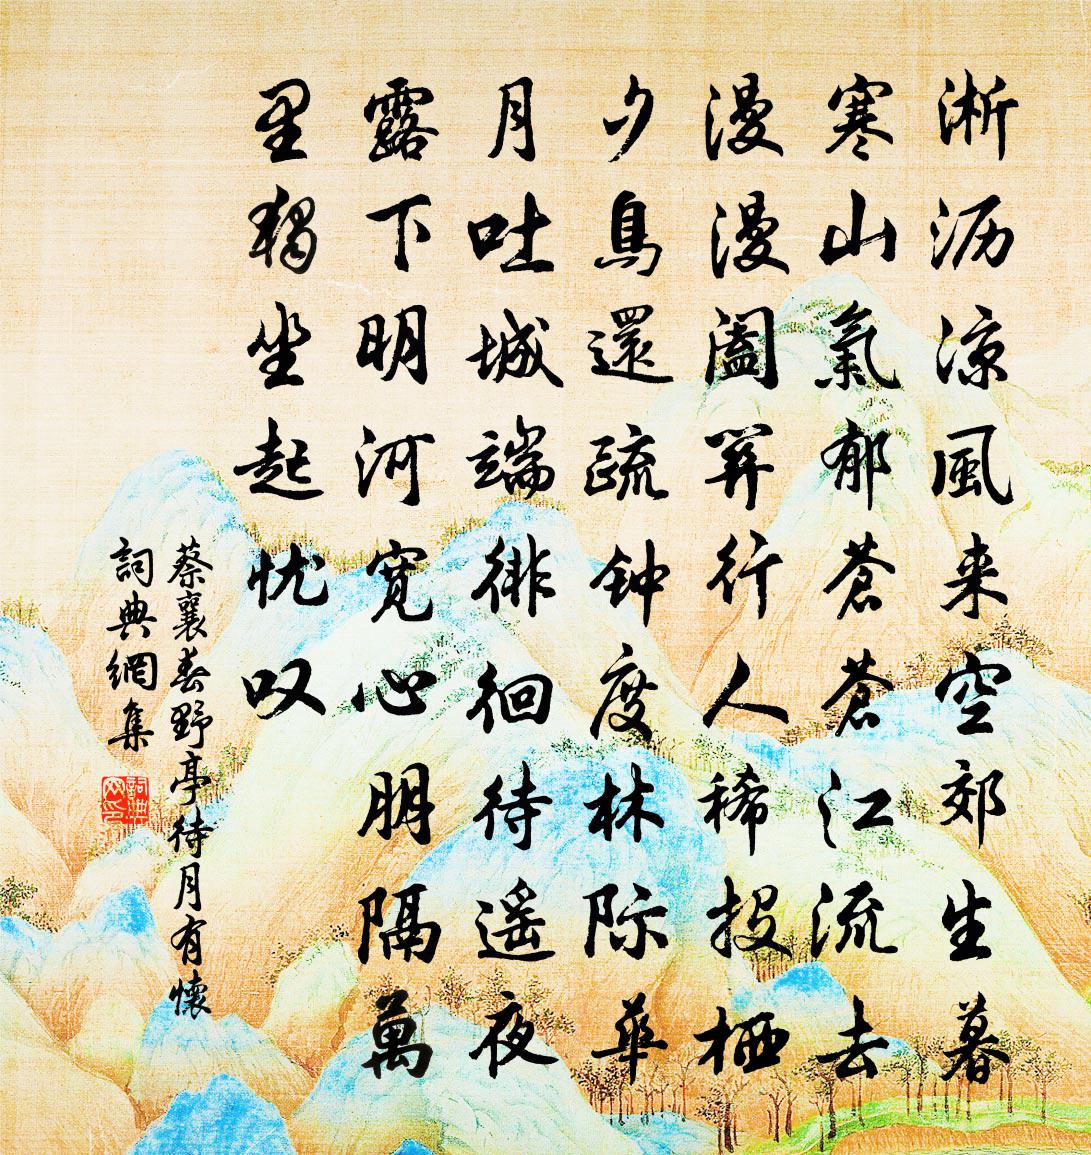 淅沥涼風来空郊生暮
寒山氣郁蒼蒼江流去
漫漫闔開行人稀投栖
夕鳥還疏钟度林际華
月吐城端徘徊待遥夜
露下明河寬心朋隔萬
里獨坐起忧叹
蔡襄春野亭待月有懷
詞典網集